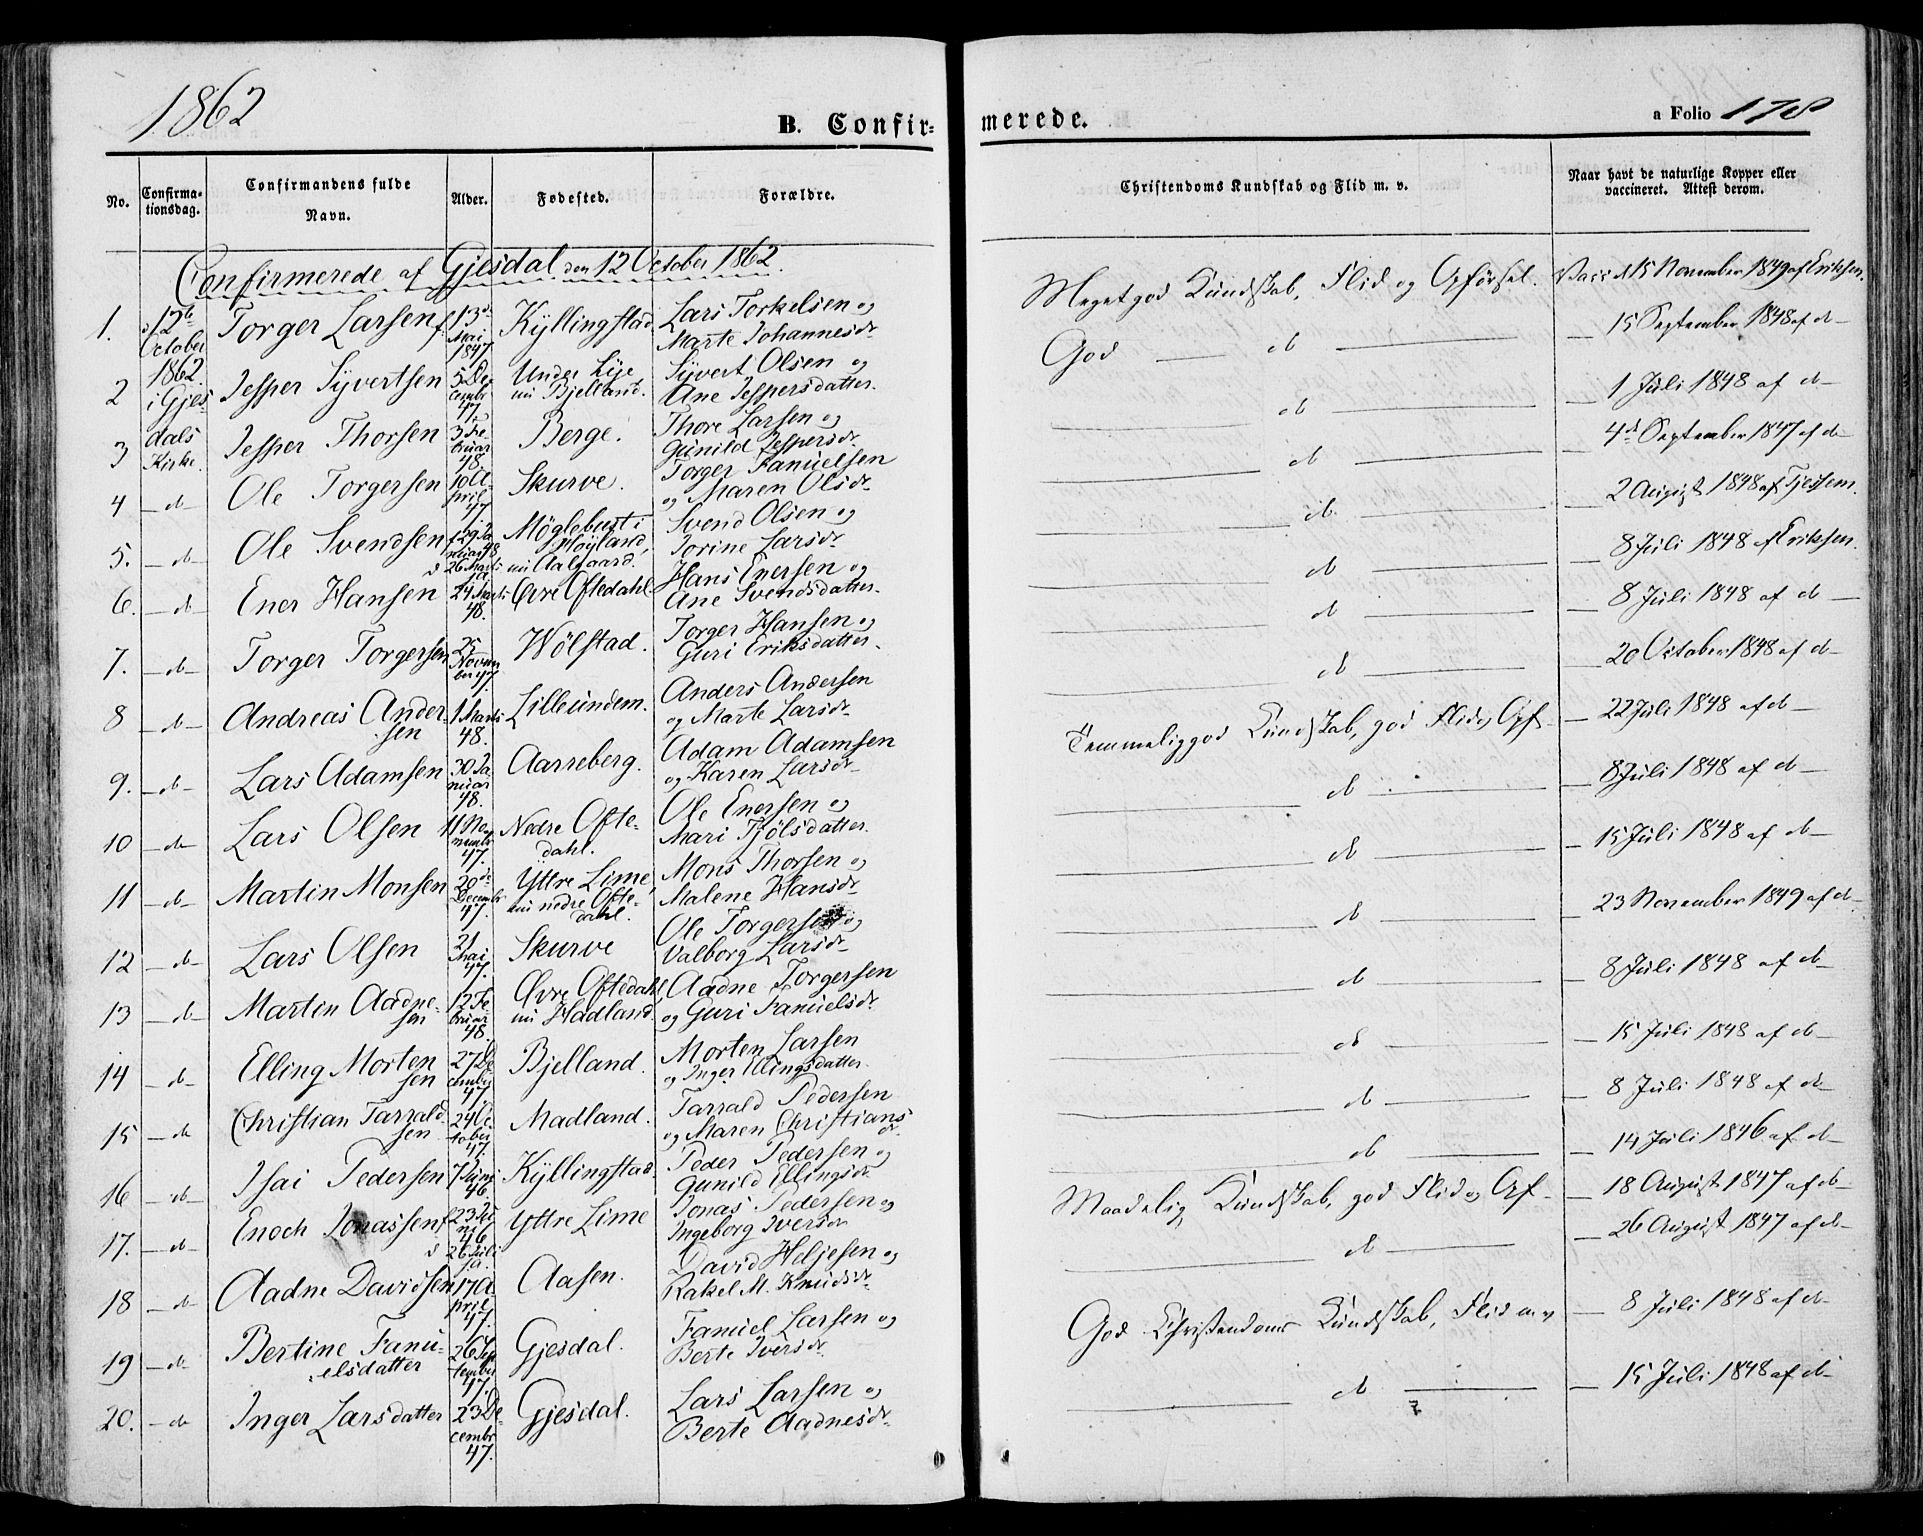 1862
B. Confirmerede.
a Folio 178
No.
Confirma-
tionsdag.
Confirmandens fulde
Navn.
Alder.
Fødested.
Forældre.
Christendoms Kundskab og Flid m. v.
Naar havt de naturlige Kopper eller
vaccineret. Attest derom.
Confirmerede af Gjesdal den 12 October 1862.
1. 12te October 1862 i Gjesdals Kirke. Torger Larsen 13de Mai 1847 Kyllingstad Lars Torkelsen og Marte Johannesdr Meget god Kundskab, Flid og Opførsel. Vacc. d 15 November 1849 af Eriksen.
2 Jesper Syvertsen 5 December 47. Under Lye nu Bjelland. Syvert Olsen og Ane Jespersdatter. God — do — 15 September 1848 af do
3 Jesper Thorsen 3 Februar 48. Berge. Thore Larsen og Gunild Jespersdr — do — 1 Juli 1848 af do
4 — do — Ole Torgersen 10 April 47 Skurve. Torger Fanuelsen og Maren Olsdr — do — 4de September 1847 af do
5. — do — Ole Svendsen f 29 Januar 48 d 26 Marts s.a. Møglebust i Høyland, nu Aalgaard. Svend Olsen og Jorine Larsdr — do — 2 August 1848 af Tjessem.
6. — do — Ener Hansen 24 Marts 48. Øvre Oftedahl Hans Enersen og Ane Svendsdatter. — do — 8 Juli 1848 af Eriksen.
7. — do — Torger Torgersen 25 November 47. Wølstad. Torger Hansen og Guri Eriksdatter. — do — 8 Juli 1848 af do
8 — do — Andreas Andersen 1 Marts 48. Lilleundem. Anders Andersen og Marte Larsdr — do — 20 October 1848 af do
9. — do — Lars Adamsen 30 Januar 48. Aarreberg. Adam Adamsen og Karen Larsdr Temmelig god Kundskab, god Flid og Opf. — 22 Juli 1848 af do
10 — do — Lars Olsen 11 November 47. Nedre Oftedahl. Ole Enersen og Mari Tjølsdatter. — do — 8 Juli 1848 af do
11 — do — Martin Monsen 20de December 47. Yttre Lime, nu nedre Oftedahl. Mons Thorsen og Malene Hansdr — do — 15 Juli 1848 af do
12 — do — Lars Olsen 21 Mai 47. Skurve Ole Torgersen og Valborg Larsdr — do — 23 November 1849 af do
13 — do — Martin Aadnesen 12 Februar 48. Øvre Oftedahl, nu Hadland. Aadne Torgersen og Guri Fanuelsdr — do — 8 Juli 1848 af do
14 — do — Elling Mortensen 27 December 47. Bjelland. Morten Larsen og Inger Ellingsdatter — do — 15 Juli 1848 af do
15 — do Christian Tarraldsen 24 October 47. Madland. Tarrald Pedersen og Maren Christiansdr — do — 8 Juli 1848 af do
16 — do — Isai Pedersen 7 Juni 46. Kyllingstad. Peder Pedersen og Gunild Ellingsdr — do — 14 Juli 1846 af do
17. — do — Enoch Jonassen f 23 Juni 46 d 26 Juli s.a. Yttre Lime Jonas Pedersen og Ingeborg Iversdr Maadelig Kundskab, god Flid og Opf. — 18 August 1847 af do
18 — do — Aadne Davidsen 17 April 47. Aasen. David Heljesen og Rakel M. Knudsdr — do — 26 August 1847 af do
19 — do — Bertine Fanuelsdatter 26 September 47. Gjesdal. Fanuel Larsen og Berte Iversdr. God Christendoms Kundskab, Flid m. v — 8 Juli 1848 af do
20. — do Inger Larsdatter 23 December 47. Gjesdal. Lars Larsen og Berte Aadnesdr — do — 15 Juli 1848 af do